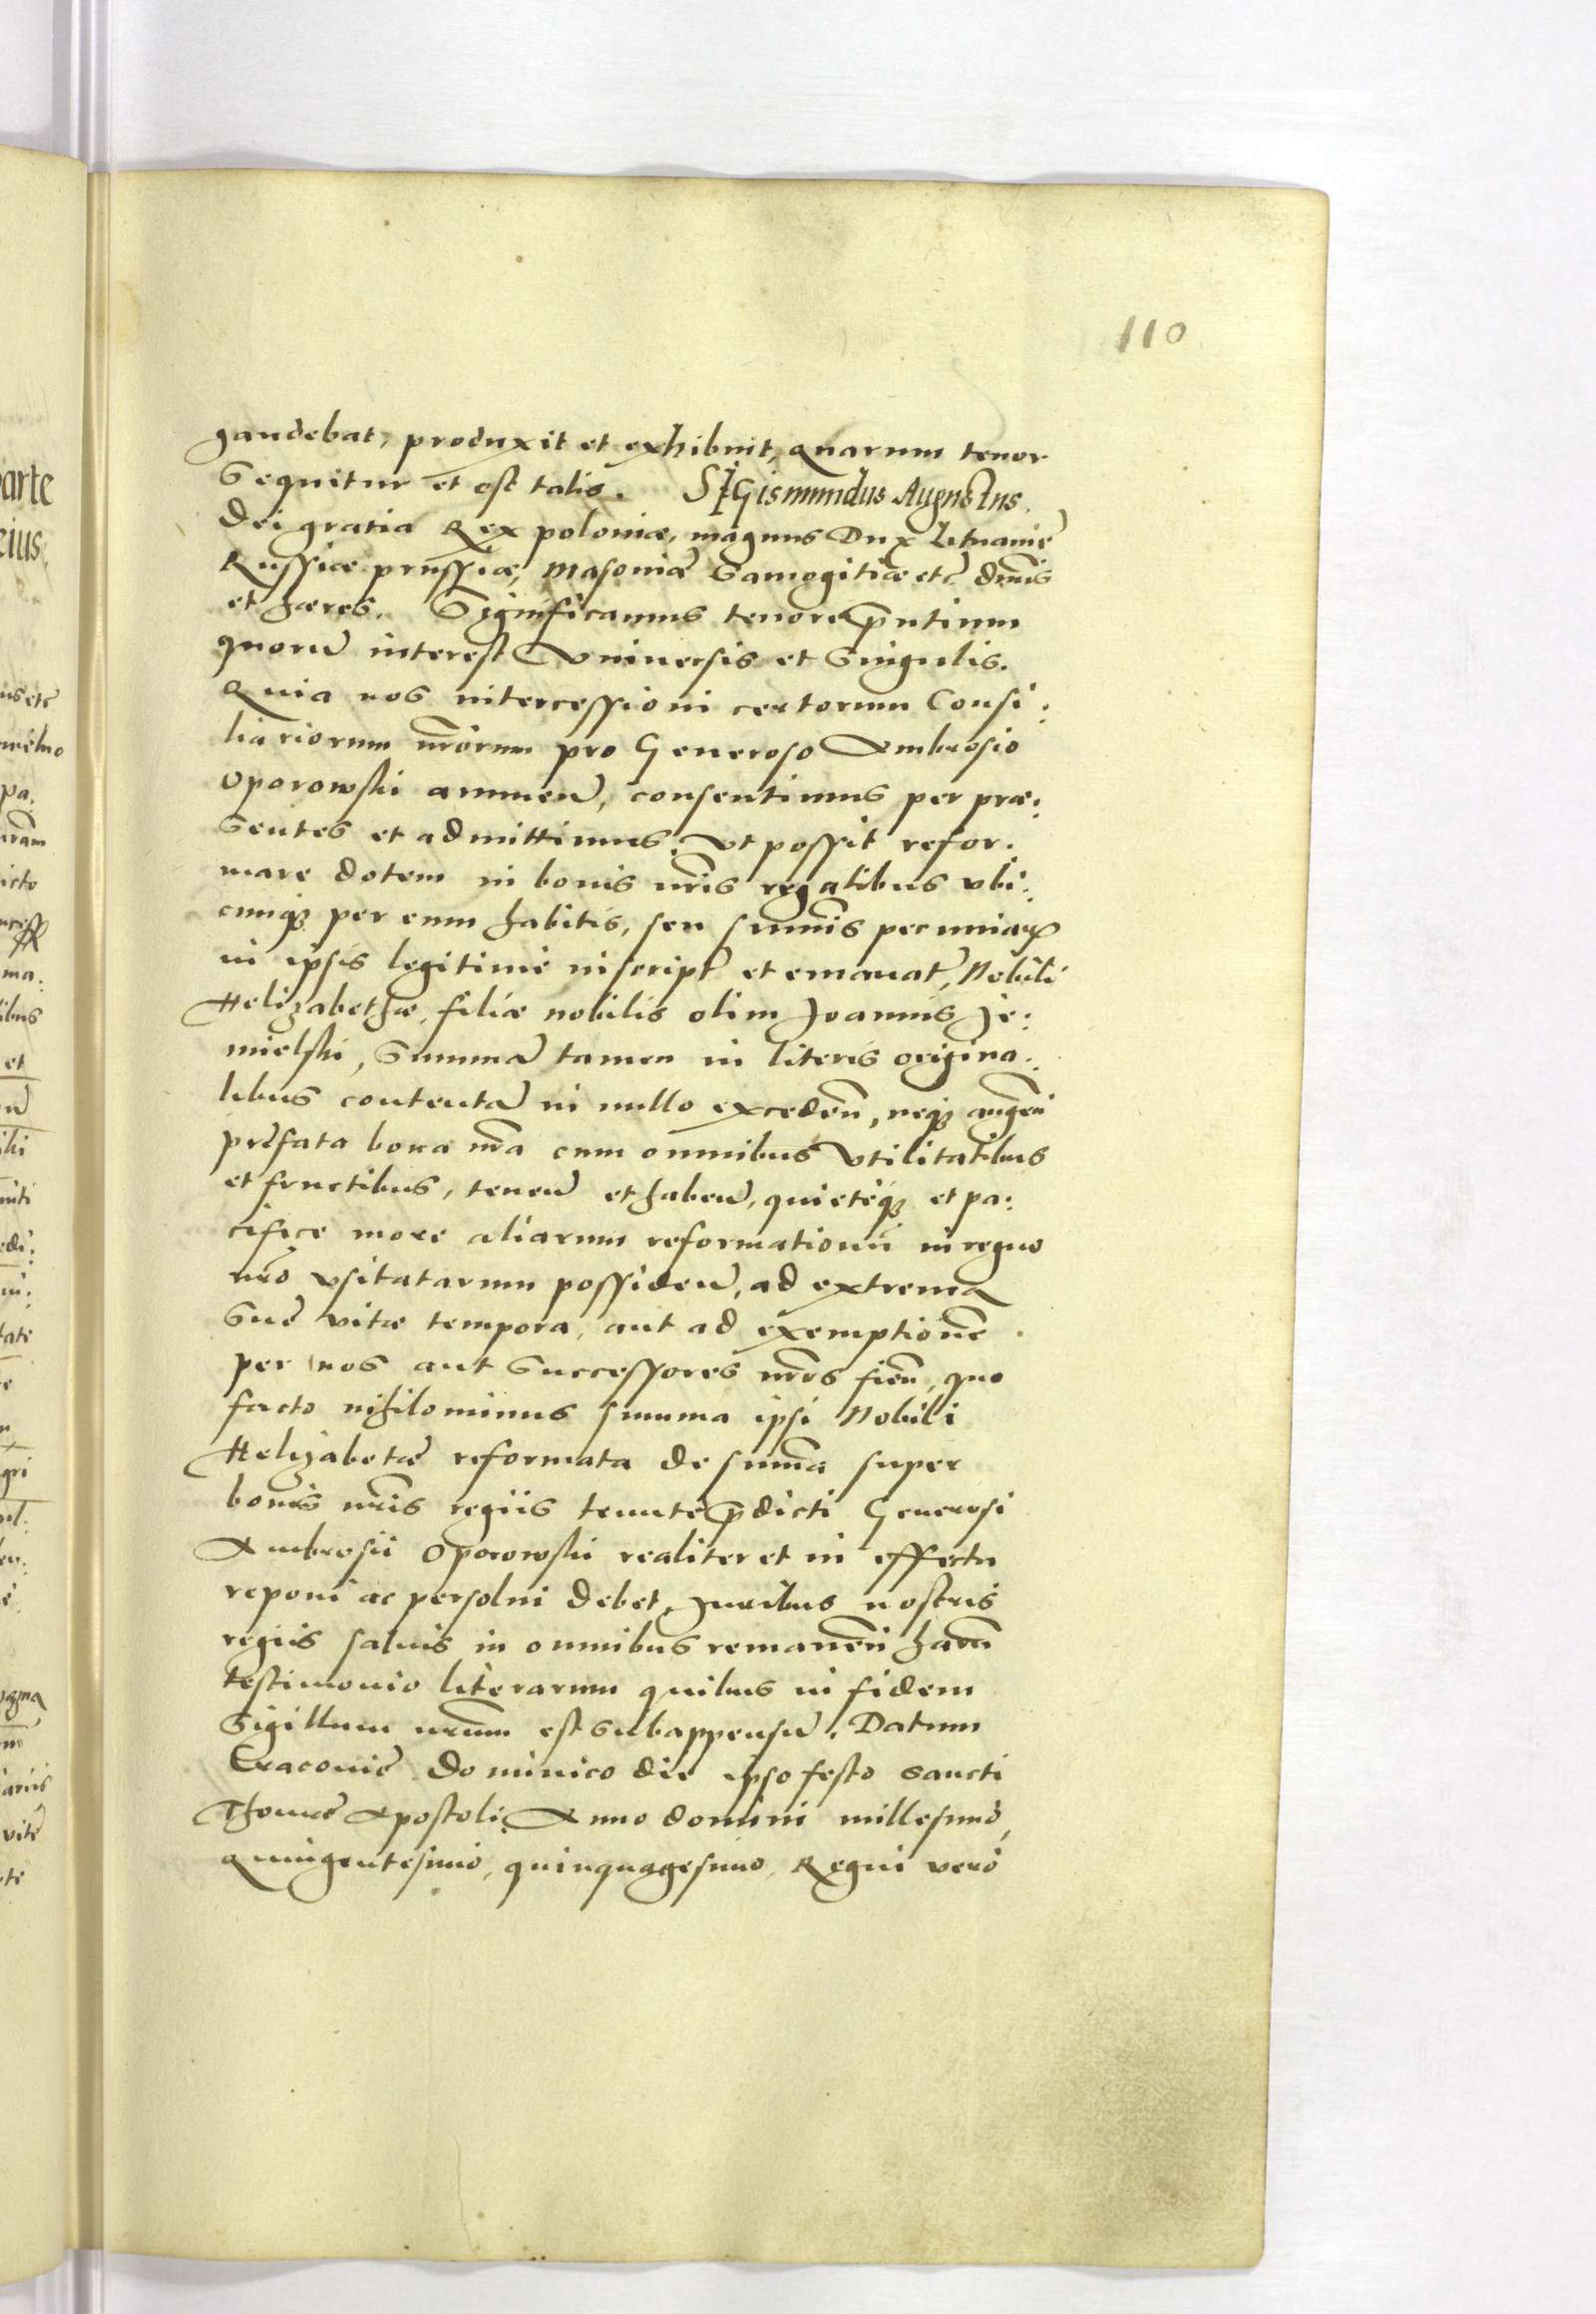 110
gaudebat, produxit et exhibuit, quarum tenor
Sequitur et est talis. SIGismundus Augustus.
Dei gratia Rex poloniæ, magnus Dux Lituanię
Russiæ prussiæ, Masoniæ Samogitiæ etc̃ dn̄us
et hæres. Significamus tenore p̄ntium
quoru̅ interest Vniuersis et Singulis.
Quia nos intercessioni certorum Consi:
liariorum nr̄orum pro Generoso Ambrosio
Oporowski annuen̄, consentimus per præ:
sentes et admittimus. Vt possit refor:
mare dotem in bonis nr̄is regalibus vbi:
cunq₃ per eum habitis, seu summis pecuniarꝝ
in ipsis legitime inscript̄ et emanat̄, Nobili
Helizabethæ, filiæ nobilis olim Joannis Je:
mielski, Summa̅ tamen in literis origina:
libus contenta̅ in nullo exceden̄, neq₃ augen̄
pręfata bona nr̄a cum omnibus Vtilitatibus
et fructibus, tenen̄ et haben̄, quieteq₃ et pa:
cifice more aliarum reformationu̅ in regno
nr̄o vsitatarum possiden̄, ad extrema
suę vitæ tempora, aut ad exemptione̅
per nos aut Successores nr̄os fien̄, quo
facto nihilominus summa ipsi Nobili
Helizabetæ reformata de sum̄a super
bonis nr̄is regiis tenutę p̄dicti Generosi
Ambrosii Oporowski realiter et in effectu
reponi ac persolui debet, Juribus nostris
regiis saluis in omnibus remanen̄ haru̅
testimonio literarum quibus in fidem
Sigillum nr̄um est subappensu̅. Datum
Cracouię Dominico die ipso festo sancti
Thomæ Apostoli. Anno domini millesimo,
Quingentesimo, quinquagesimo, Regni vero